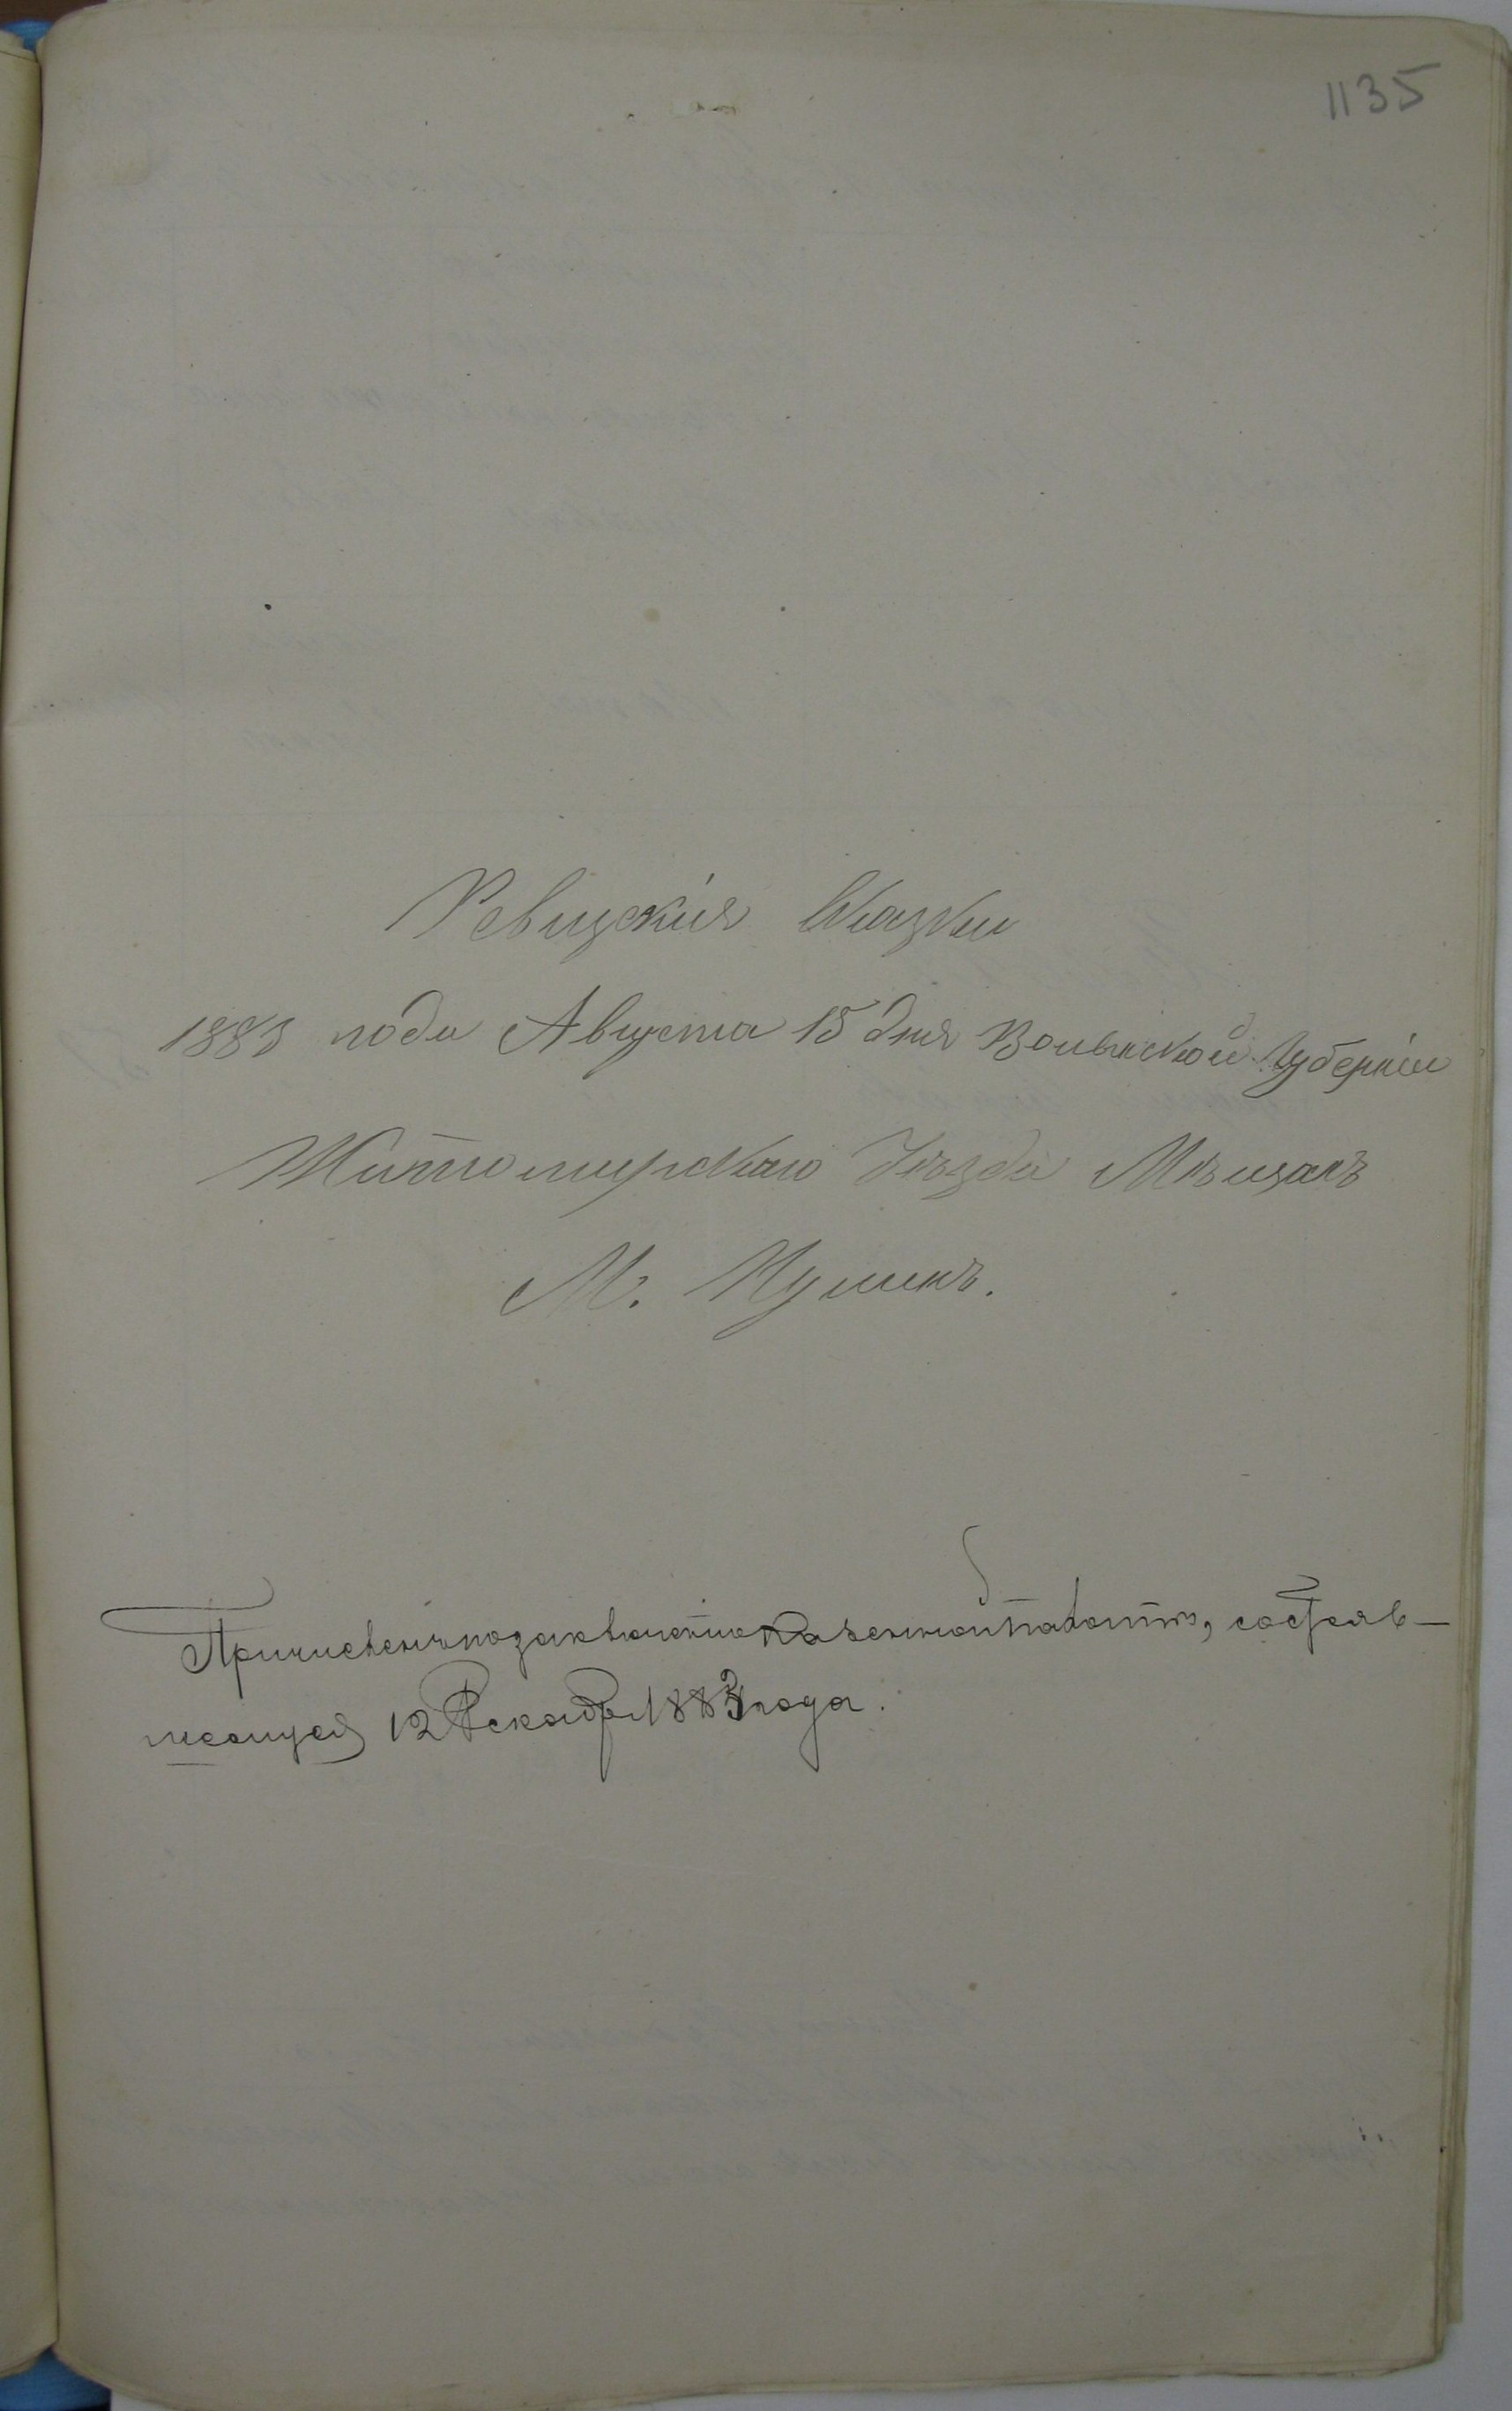 1135
Ревизскія Сказки
1883 года Августа 15 дня Волынской Губерніи
Житомирскаго Уѣзда Мѣщанъ
М. Кулинъ.
Причисленъ по заключенію Казенной Палаты, состояв-
шемуся 12 Декабря 1883 года.